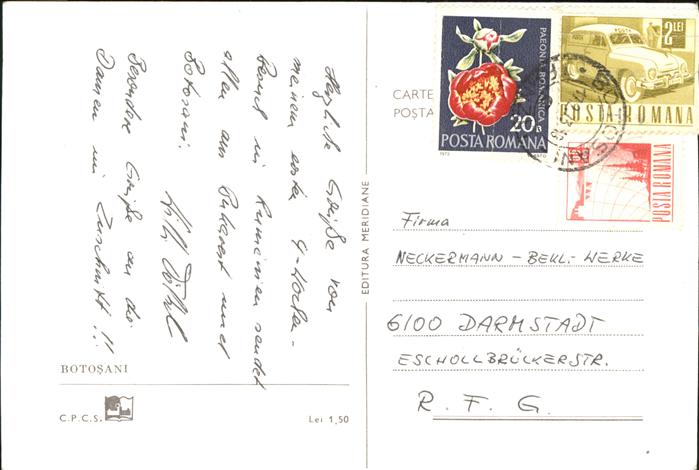 Herzliche Grüße von
meinem ersten 4-Wochen-
Besuch in Rumänien sendet
allen aus Bukarest und
Botosani.
Willi
Besondere Grüße an die
Damen im Zuschnitt !!!
BOTOȘANI
C.P.C.S.
Lei 1,50
EDITURA MERIDIANE
CARTE
POȘTA
PAEONIA ROMANICA
20 B
POSTA ROMANA
1972
2 LEI
POSTA ROMANA
POSTA ROMANA
Firma
NECKERMANN - BEKL.- WERKE
6100 DARMSTADT
ESCHOLLBRÜCKERSTR.
R. F. G.